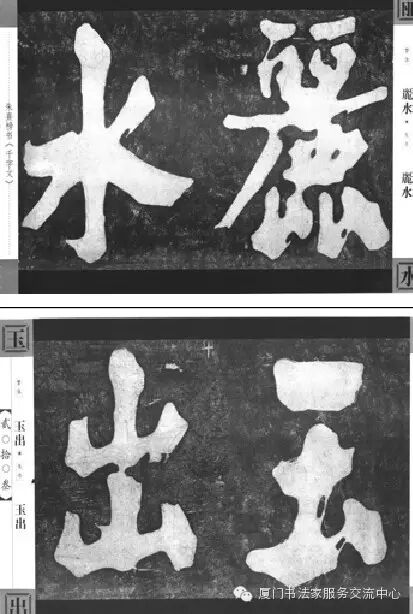 麗水
麗水
麗水
水
朱熹榜书《千字文》
玉出
玉
玉出
玉出
【贰○拾○叁】
出
厦门书法家服务交流中心